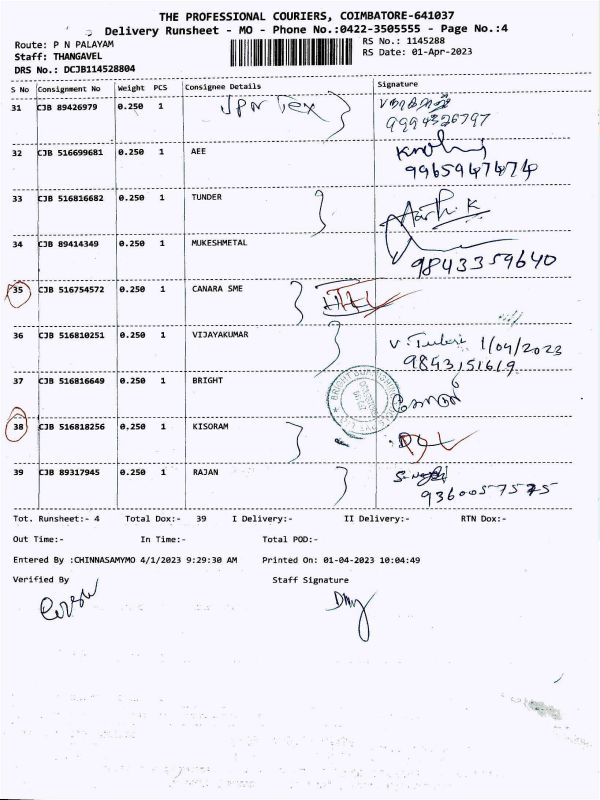 THE PROFESSIONAL COURIERS, COIMBATORE-641037
Delivery Runsheet - MO - Phone No.:0422-3505555 - Page No.:4
Route: P N PALAYAM
RS No.: 1145288
Staff: THANGAVEL
RS Date: 01-Apr-2023
DRS No.: DCJB114528804
S No Consignment No Weight PCS Consignee Details Signature
31 CJB 89426979 0.250 1 Jpn Tex
9994326797
32 CJB 516699681 0.250 1 AEE
9965947474
33 CJB 516816682 0.250 1 TUNDER Aarthi K
34 CJB 89414349 0.250 1 MUKESHMETAL
9843359640
35 CJB 516754572 0.250 1 CANARA SME
36 CJB 516810251 0.250 1 VIJAYAKUMAR V. Tulasi 1/04/2023
9843151619
37 CJB 516816649 0.250 1 BRIGHT
38 CJB 516818256 0.250 1 KISORAM DCL
39 CJB 89317945 0.250 1 RAJAN
9360057575
Tot. Runsheet:- 4 Total Dox:- 39 I Delivery:- II Delivery:- RTN Dox:-
Out Time:- In Time:- Total POD:-
Entered By :CHINNASAMYMO 4/1/2023 9:29:30 AM Printed On: 01-04-2023 10:04:49
Verified By Staff Signature